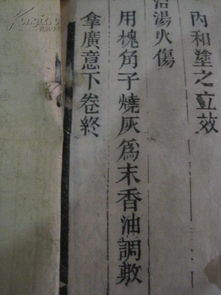 內和塗之立效
治湯火傷
用槐角子燒灰爲末香油調敷
拿廣意下卷終